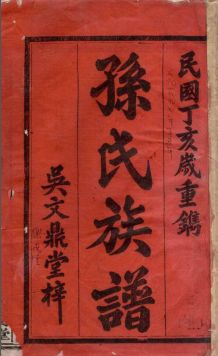 民國丁亥歲重鐫
孫氏族譜
吳文鼎堂梓